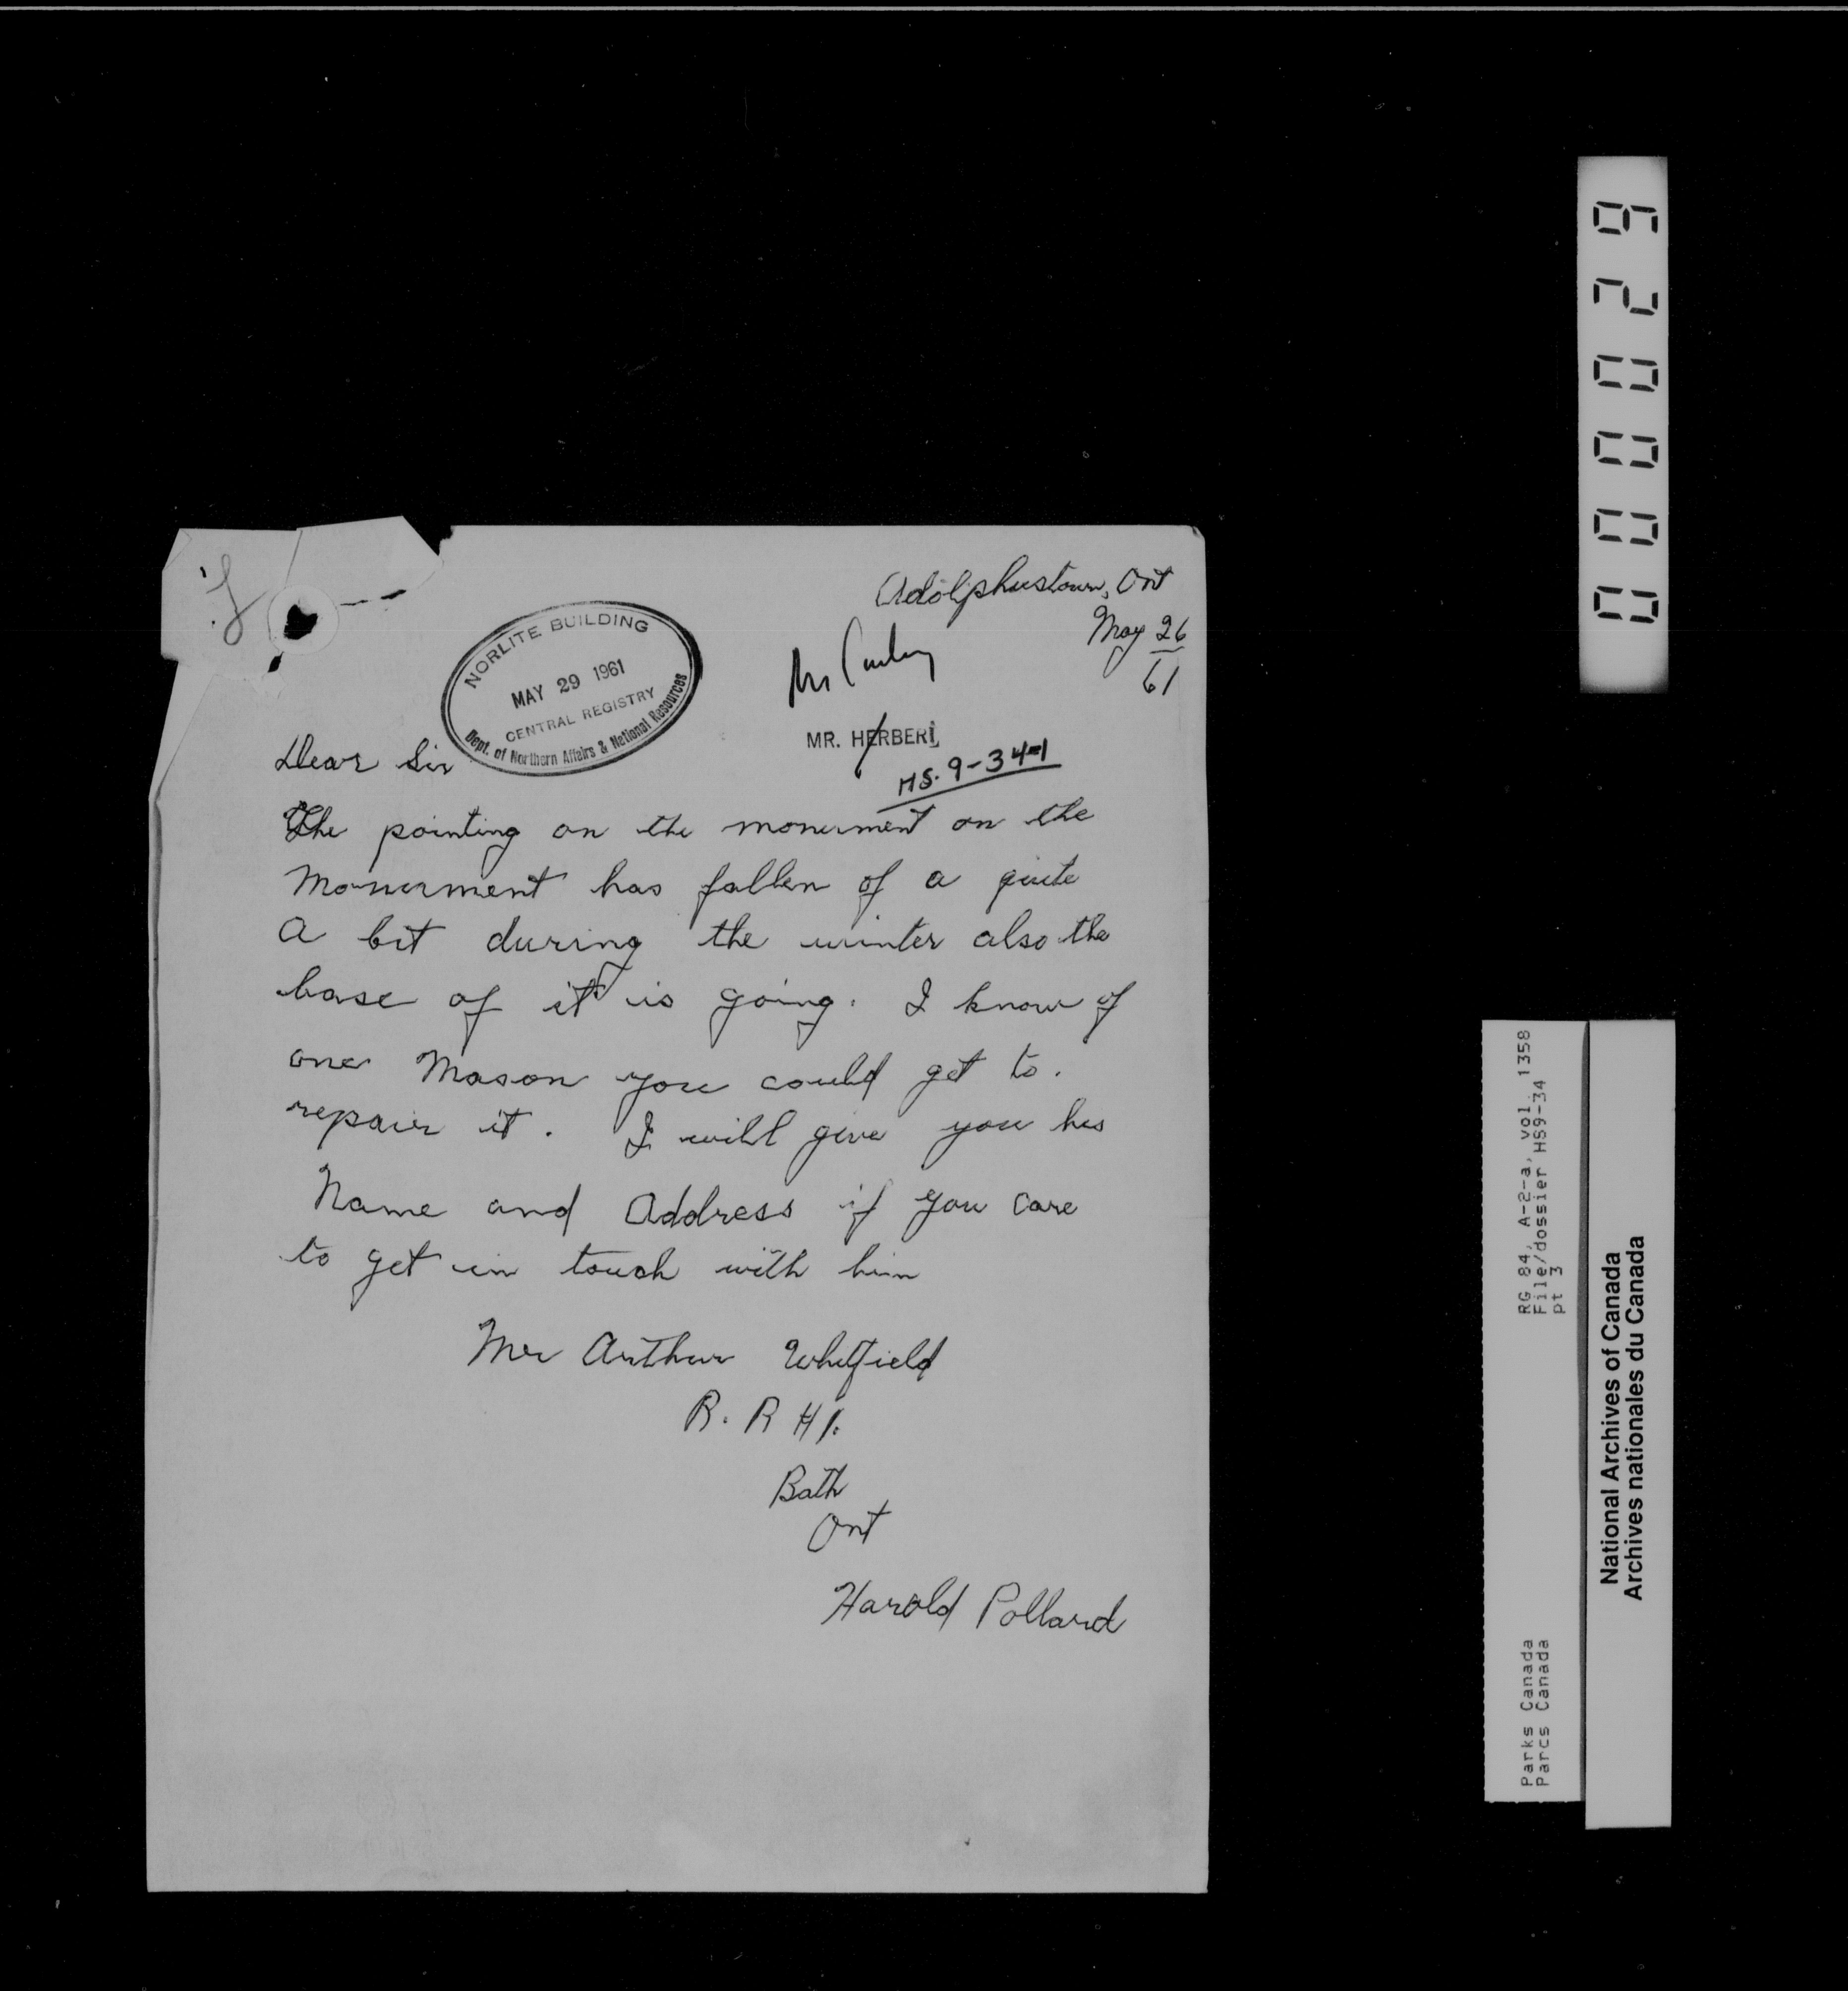 Adolphustown, Ont
May 26
61
NORLITE BUILDING
MAY 29 1961
CENTRAL REGISTRY
Dept. of Northern Affairs & National Resources
Mr
MR. HERBERT
HS. 9-34-1
Dear Sir
The pointing on the monument on the
Monurment has fallen of a quite
a bit during the winter also the
base of it is going. I know of
one Mason you could get to.
repair it. I will give you his
Name and Address if you care
to get in touch with him
Mr Arthur Whitfield
R. R # 1.
Bath
Ont
Harold Pollard
000029
RG 84, A-2-a, vol. 1358
File/dossier HS9-34
pt 3
Parks Canada
Parcs Canada
National Archives of Canada
Archives nationales du Canada